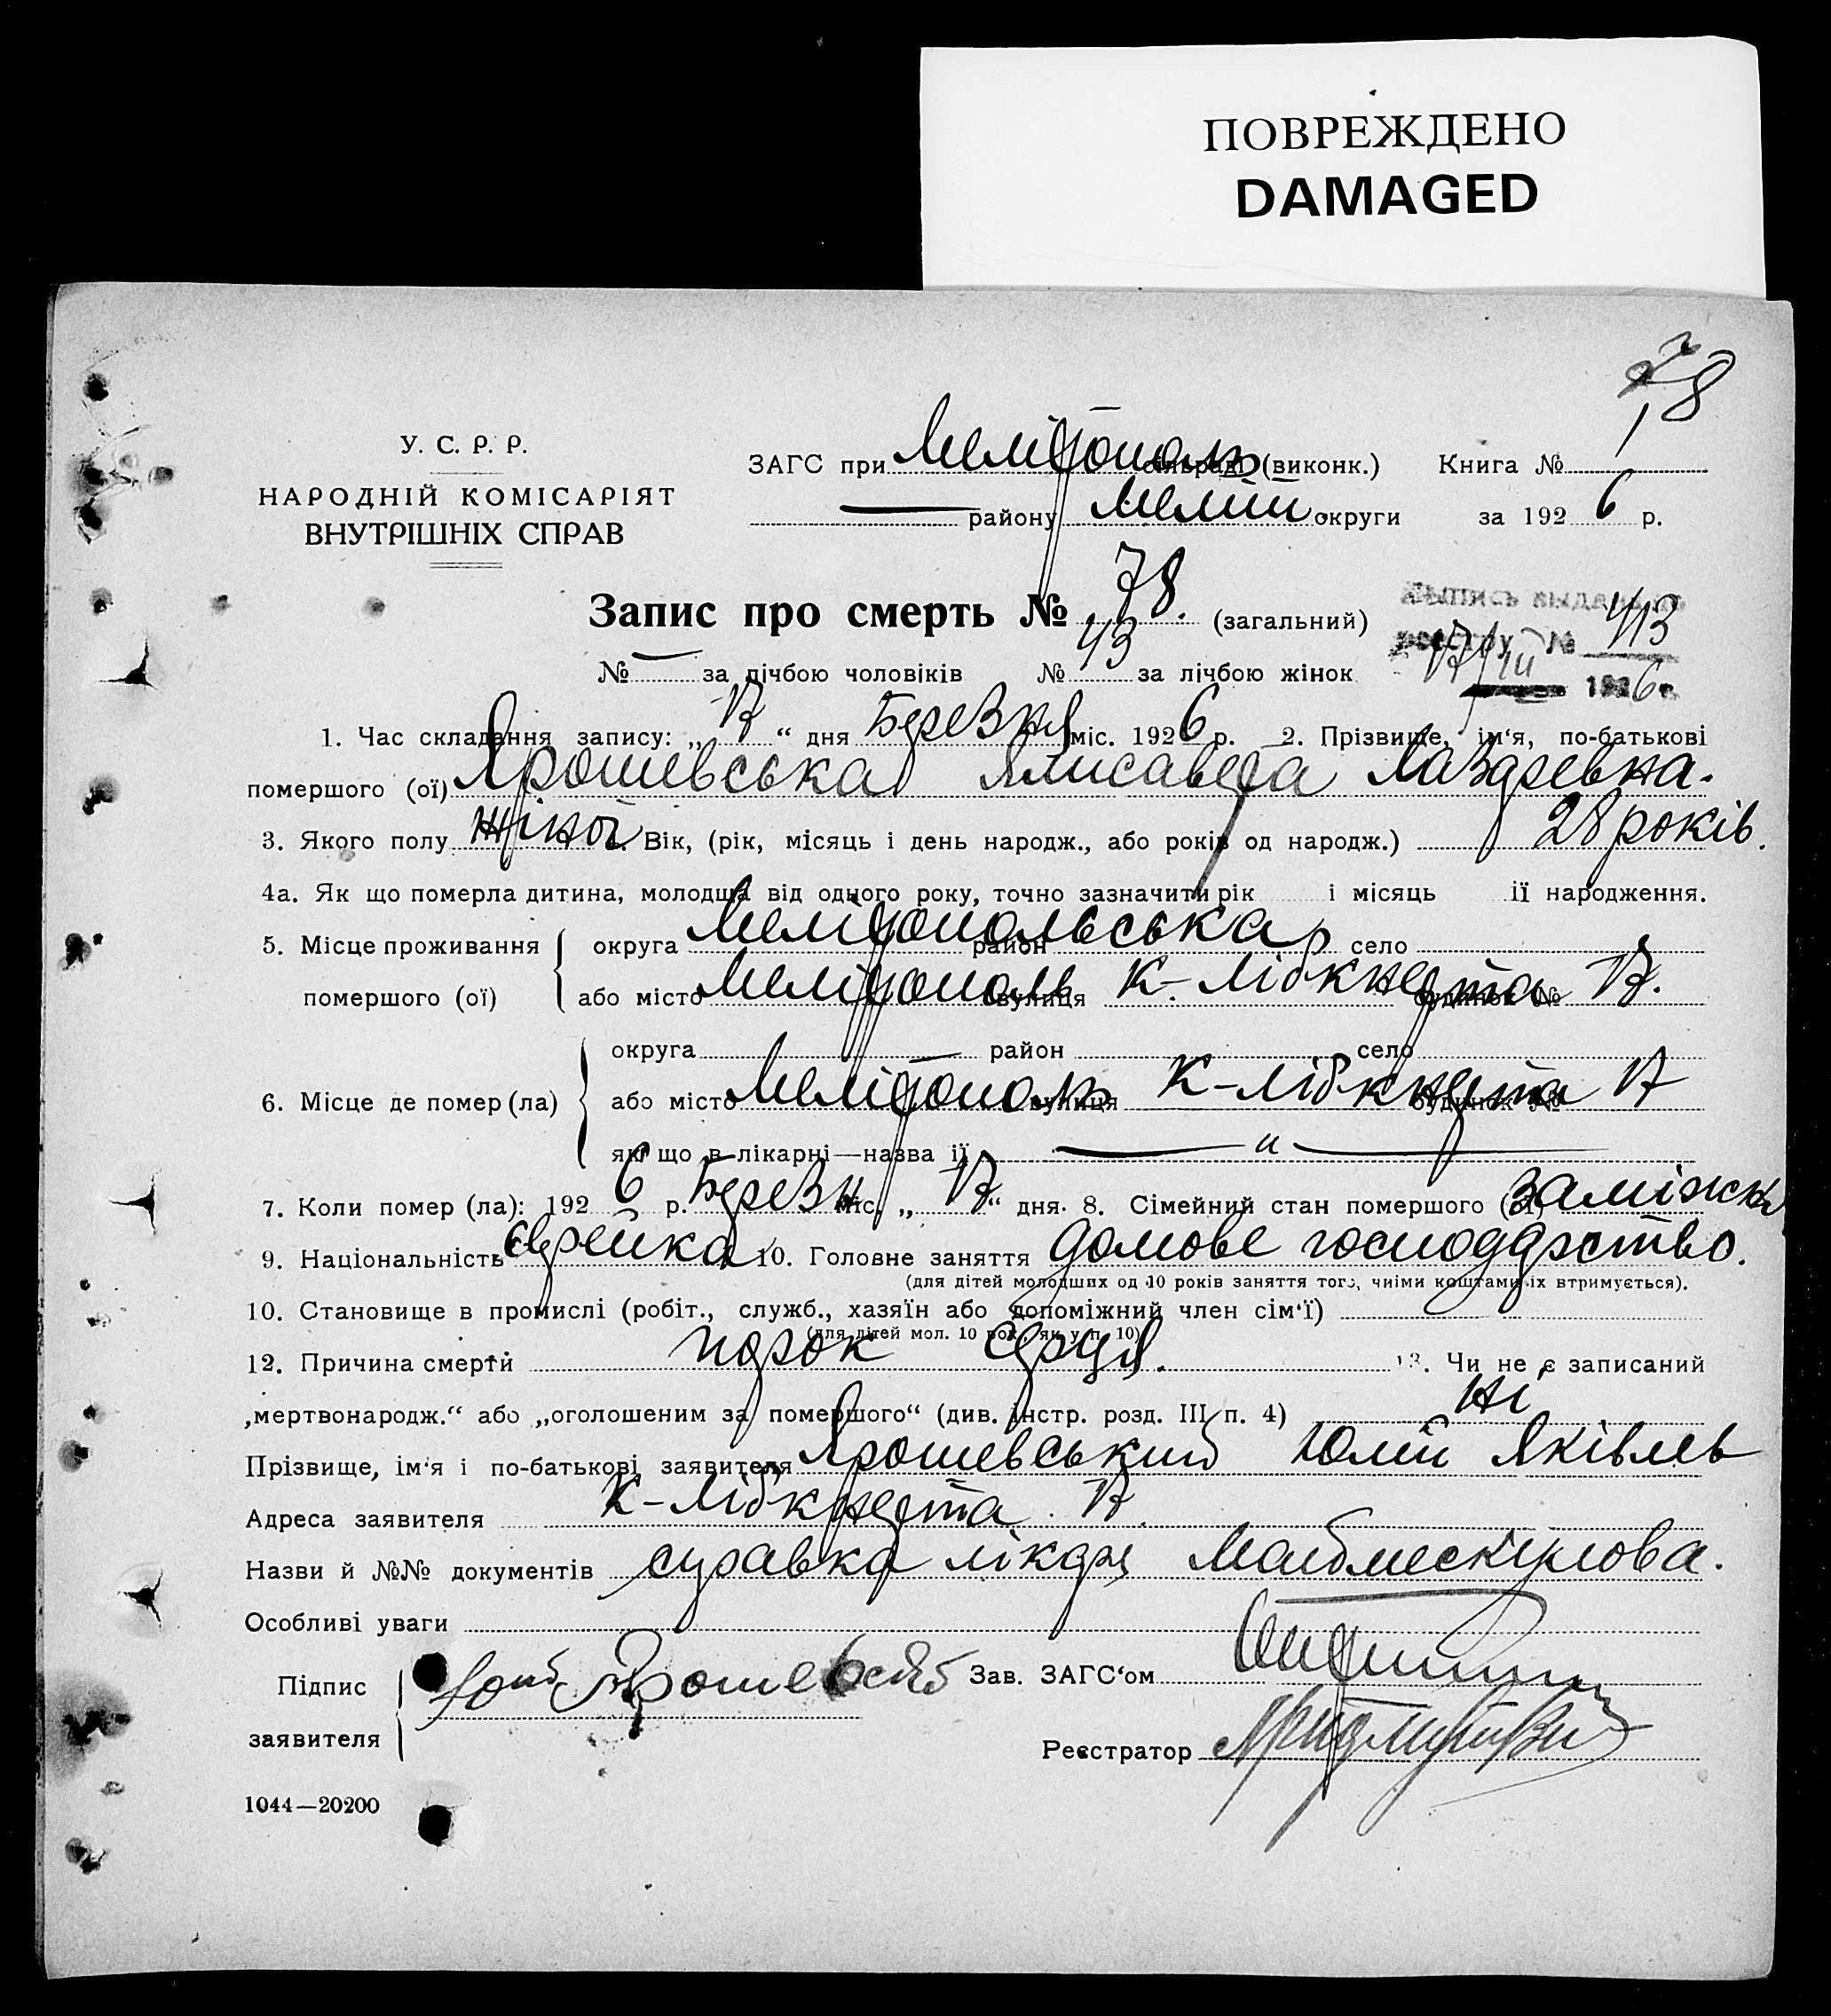 ПОВРЕЖДЕНО
DAMAGED
78
У. С. Р. Р.
НАРОДНІЙ КОМІСАРІЯТ
ВНУТРІШНІХ СПРАВ
ЗАГС при Мелітополь сільраді (виконк.) Книга №
— району Меліт округи за 1926 р.
Запис про смерть № 78. (загальний)
№ — за лічбою чоловіків № 43 за лічбою жінок
Выпись выдана по
реестру № 413
17/III 1926 г.
1. Час складання запису: „17“ дня Березня міс. 1926 р. 2. Прізвище, ім‘я, по-батькові
помершого (ої) Ярошевська Єлисавета Лазаревна.
3. Якого полу жіноч. Вік, (рік, місяць і день народж., або років од народж.) 28 років.
4а. Як що померла дитина, молодща від одного року, точно зазначити рік і місяць ії народження.
5. Місце проживання помершого (ої) округа Мелітопольська район село
або місто Мелітополь вулиця К-Лібкнехта будинок № 17.
6. Місце де помер (ла) округа — район село
або місто Мелітополь вулиця К-Лібкнехта будинок № 17
як що в лікарні—назва ії — „ —
7. Коли помер (ла): 1926 р. Березн міс. „17“ дня. 8. Сімейний стан помершого (ої) заміжня
9. Національність єврейка 10. Головне заняття домове господарство.
(для дітей молодших од 10 років заняття того, чиіми коштами їх втримується).
10. Становище в промислі (робіт., служб., хазяїн або допоміжний член сім‘ї)
(для дітей мол. 10 рок., як у п. 10)
12. Причина смерти порок серця. 13. Чи не є записаний
„мертвонародж.“ або „оголошеним за помершого“ (див. інстр. розд. III п. 4) ні
Прізвище, ім‘я і по-батькові заявителя Ярошевський Юлій Яківлев
Адреса заявителя К-Лібкнехта 17.
Назви й №№ документів справка лікаря
Особливі уваги
Підпис заявителя Ярошевский Зав. ЗАГС‘ом
Реєстратор
1044—20200